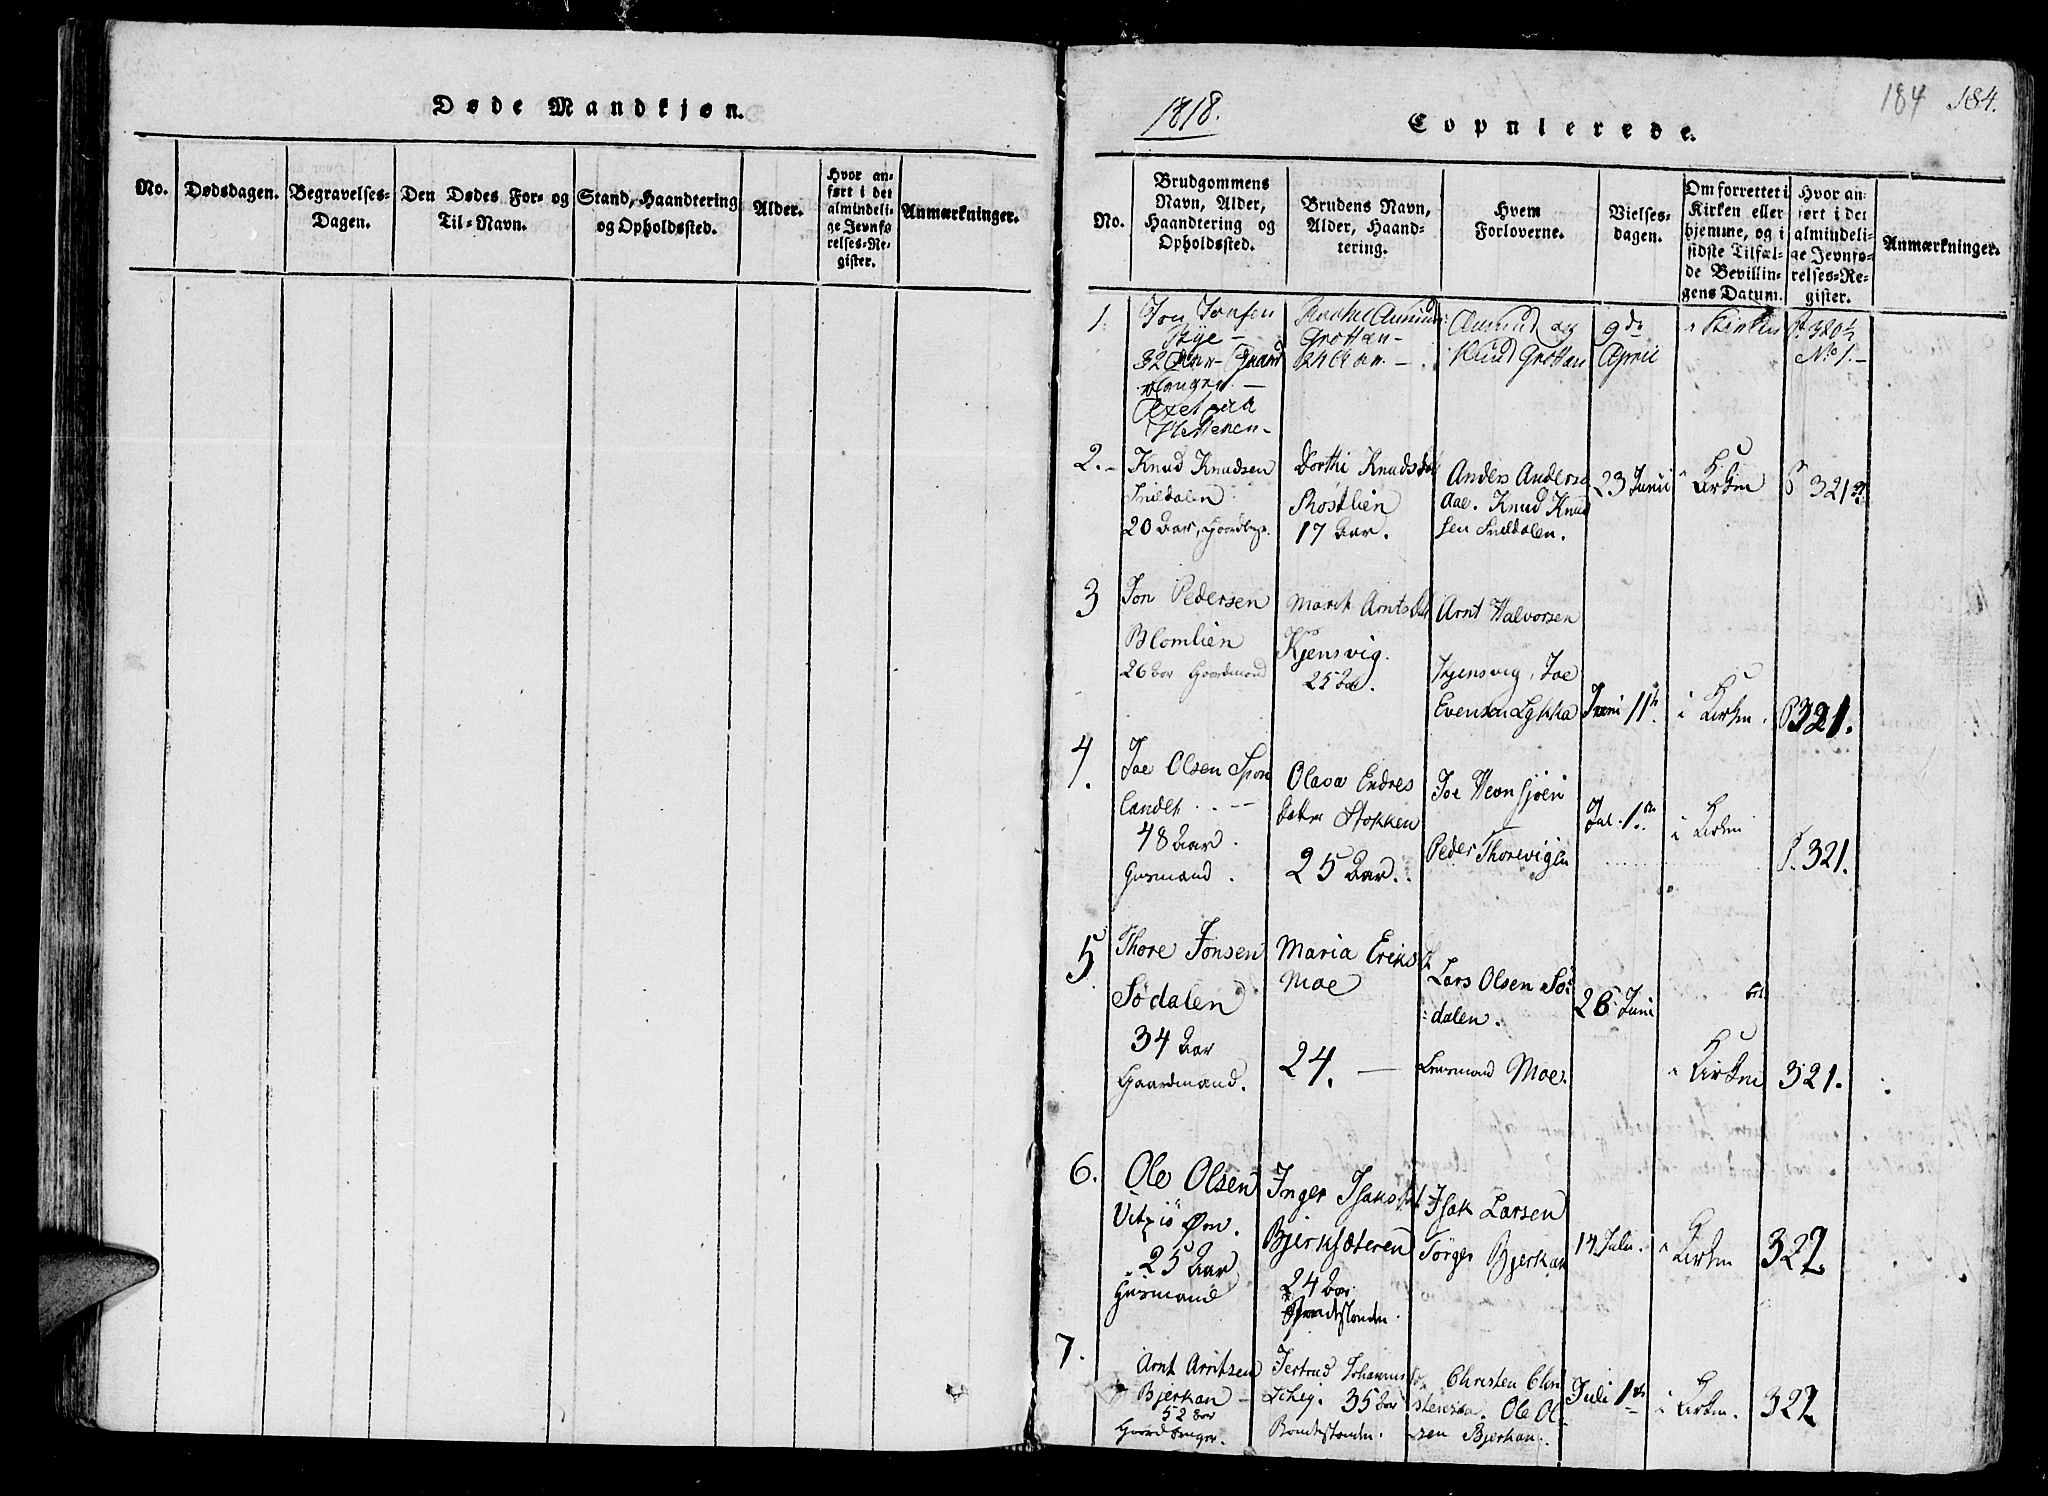 Døde Mandkjøn.
No.
Dødsdagen.
Begravelses-
Dagen.
Den Dødes For- og
Til-Navn.
Stand, Haandtering
og Opholdssted.
Alder.
Hvor an-
ført i det
almindeli-
ge Jevnfø
relses-Re-
gister.
Anmærkninger.
184 184.
1818.
Copulerede.
No.
Brudgommens
Navn, Alder,
Haandtering og
Opholdssted.
Brudens Navn,
Alder, Haand-
tering.
Hvem
Forloverne.
Vielses-
dagen.
Om forrettet i
Kirken eller
hjemme, og i
sidste Tilfæl-
de Bevillin-
gens Datum.
Hvor an-
ført i det
almindeli-
ge Jevnfø-
relses-Re-
gister.
Anmærkninger.
1.
Jon Jonsen
Rye -
32 Aar
Grottan -
Amund og
Knud Grottan
9de
April
i Kirken
No 1. -
2. -
Knud Knudsen
Snildalen
20 Aar,
Dorthi Knudsdat
Røstlien
17 Aar.
Anders Anderse
Aae. Knud Knud
sen Snildalen.
23 Junii
i Kirken
P 321
3
Jon Pedersen
Blomlien
26 Aar Gaardmand
Marit Arntsdat
Kjensvig.
25 Aar.
Arnt Halvorsen
Kjensvig, Joe
Evensen Lykka
Juni 11te
i Kirken.
P 321.
4.
Joe Olsen Spon
landet. . --
48 Aar.
Husmand.
Olava Endres
Datter Stokken
25 Aar.
Joe Hevnsjøen
Peder Thorevigen
Jul. 1ste
i Kirken
P. 321.
5
Thore Jonsen
Sødalen
34 Aar
Gaardmand.
Maria Eriksd
Moe
24. -
Lars Olsen Sø:
:dalen.
Lensmand Moe.
26 Juni
i Kirken
321.
6.
Ole Olsen
Vitsiø Øvn.
25 Aar
Husmand
Inger Isaksdat
Bjerksæteren
24 Aar.
Bondestanden.
Isak Larsen
Tørger Bjerkan
14 Julii.
i Kirken
322
7.
Arnt Arntsen
Bjerkan -
52 Aar
Gaardbruger.
Jertrud Johannis
35 Aar
Bondestanden.
Christen Chri
stensen. Ole Ol-
sen Bjerkan.
Juli 1ste
i Kirken.
322